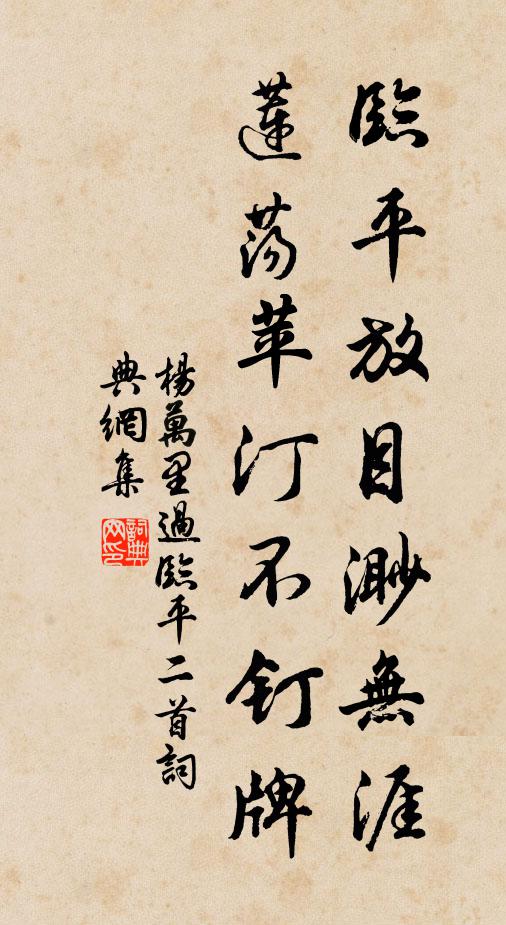 臨平放目渺無涯
蓮蕩苹汀不釘牌
楊萬里過臨平二首詞
典網集
詞典
网印